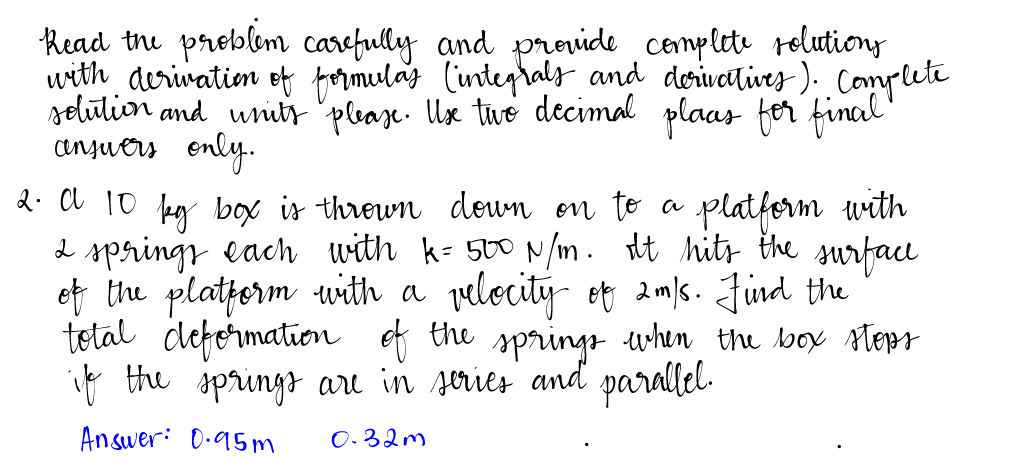 Read the problem carefully and provide complete solutions
with derivation of formulas (integrals and derivatives). Complete
solution and units please. Use two decimal places for final
answers only.
2. A 10 kg box is thrown down on to a platform with
2 springs each with k= 500 N/m. It hits the surface
of the platform with a velocity of 2m/s. Find the
total deformation of the springs when the box stops
if the springs are in series and parallel.
Answer: 0.95m 0.32m